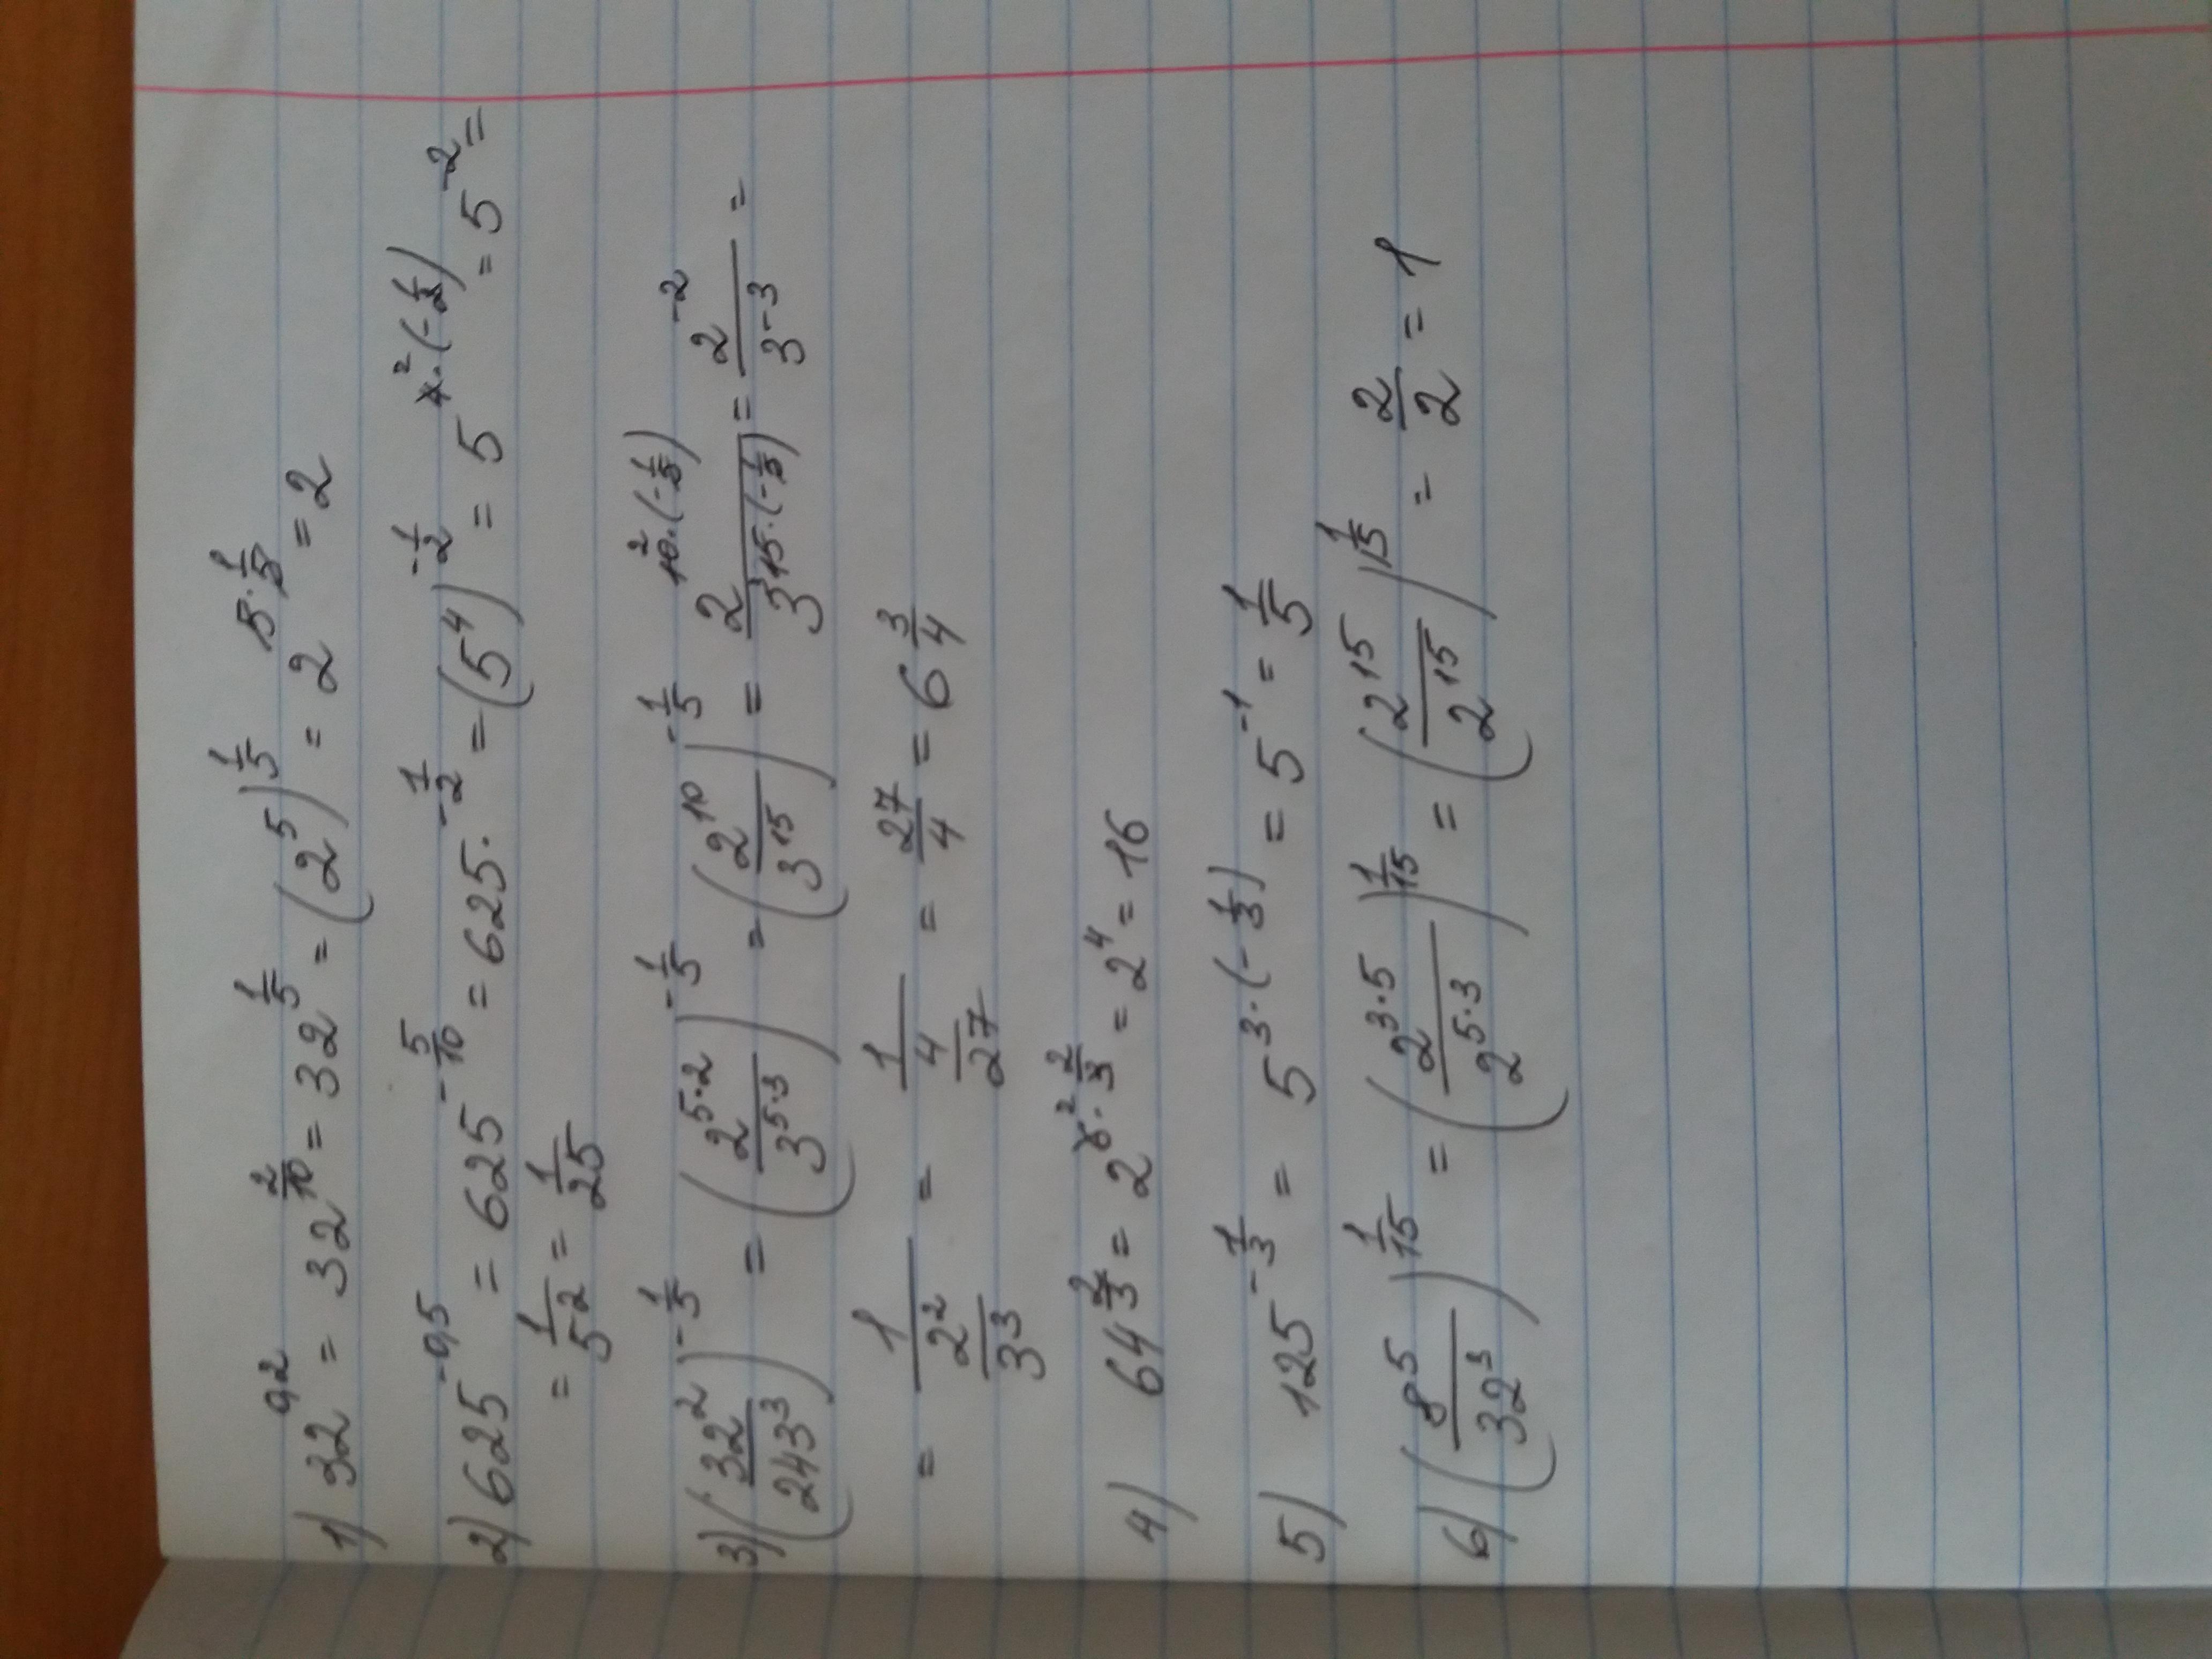 1) 32^{0,2} = 32^{\frac{2}{10}} = 32^{\frac{1}{5}} = (2^5)^{\frac{1}{5}} = 2^{5 \cdot \frac{1}{5}} = 2
2) 625^{-0,5} = 625^{-\frac{5}{10}} = 625 \cdot^{-\frac{1}{2}} = (5^4)^{-\frac{1}{2}} = 5^{4^2 \cdot (-\frac{1}{2})} = 5^{-2} =
= \frac{1}{5^2} = \frac{1}{25}
3) (\frac{32^2}{243^3})^{-\frac{1}{5}} = (\frac{2^{5 \cdot 2}}{3^{5 \cdot 3}})^{-\frac{1}{5}} = (\frac{2^{10}}{3^{15}})^{-\frac{1}{5}} = \frac{2^{10^2 \cdot (-\frac{1}{5})}}{3^{15^3 \cdot (-\frac{1}{5})}} = \frac{2^{-2}}{3^{-3}} =
= \frac{1}{\frac{2^2}{3^3}} = \frac{1}{\frac{4}{27}} = \frac{27}{4} = 6\frac{3}{4}
4) 64^{\frac{2}{3}} = 2^{6^2 \cdot \frac{2}{3}} = 2^4 = 16
5) 125^{-\frac{1}{3}} = 5^{3 \cdot (-\frac{1}{3})} = 5^{-1} = \frac{1}{5}
6) (\frac{8^5}{32^3})^{\frac{1}{15}} = (\frac{2^{3 \cdot 5}}{2^{5 \cdot 3}})^{\frac{1}{15}} = (\frac{2^{15}}{2^{15}})^{\frac{1}{15}} = \frac{2}{2} = 1